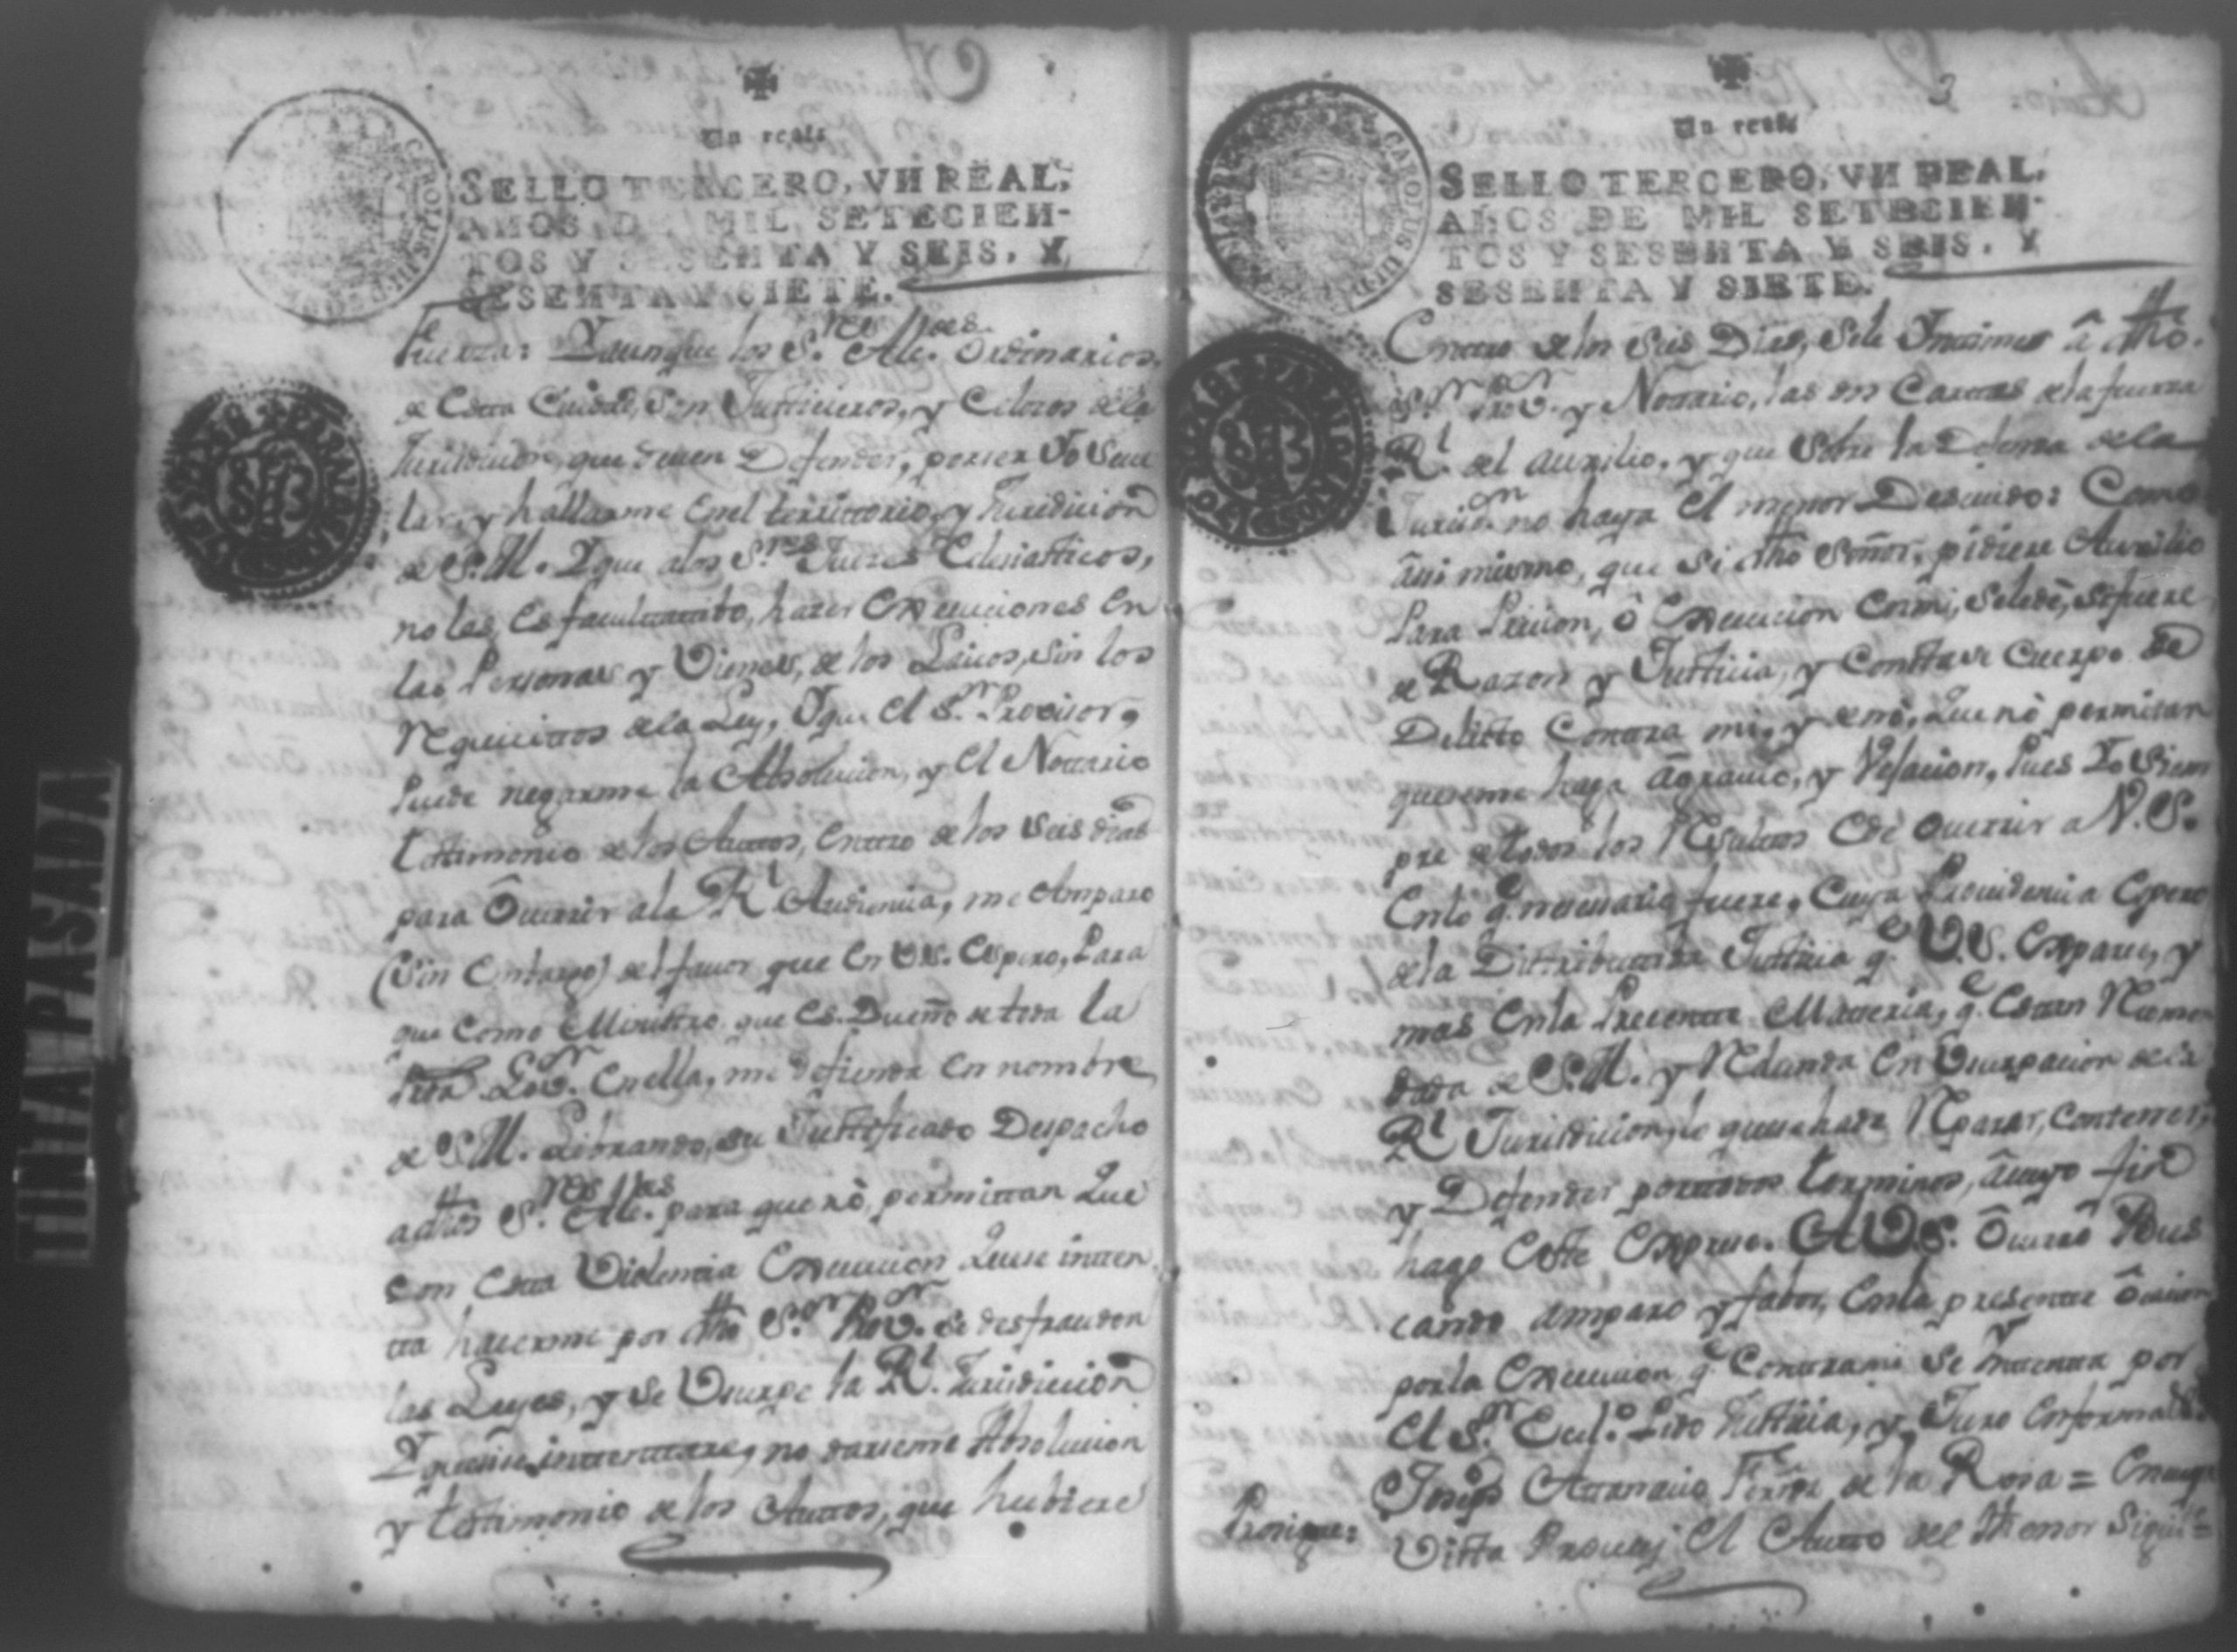 Un reals
SELLO TERCERO, VN REAL,
AÑOS DE MIL SETECIEN-
TOS Y SESENTA Y SEIS, Y
SESENTA Y SIETE.
fuerza: Y aunque los S.res Alc.des Ordinarios
de Esta Ciudad, son Justicieros, y Celosos dela
Juridicion, que deven Defender, por ser Yo Secu
lar, y hallarme Enel territorio, y Juridicion
de S. M. Y que alos S.res Jueses Eclesiasticos,
no les, Es facultatibo, hazer Execuciones En
las Personas y Vienes, de los Laicos, sin los
Requicitos dela Ley, Y que El S.r Provisor,
puede negarme la Absolucion, y El Notario
testimonio de los Autos, Entro de los seis dias
para Ocurrir ala R.l Audiencia, me Amparo
(Sin Embargo) del favor que En VS. Espero, Para
que Como Ministro que Es. Dueño de toda la
En ella, me defienda En nombre
de S. M. Librando, su Justificado Despacho
adhos S.res Alc.des para que nó, permittan Que
con Esta Violencia Execucion Que se inten
ta hacerme por dho S.or Prov.or se desfrauden
las Leyes, y se Usurpe la R.l Juridicion
Y que me no darseme Absolucion
y testimonio de los Autos, que hubiere
3
Un reals
SELLO TERCERO, VN REAL,
AÑOS DE MIL SETECIEN-
TOS Y SESENTA Y SEIS, Y
SESENTA Y SIETE.
Entro de los Seis Dias, Sele Intimes â dho.
S.or Prov.or y Notario, las Cartas dela fuerza
R.l del auxilio, y que sobre la Defensa dela
Jurisd.n no haya El menor Descuido: Como
âsi mismo, que si dho Señor, pidiere Auxilio
Para Pricion, ô Execucion Cormi, Sele dê, si fuere
de Razon y Justicia, y Constare Cuerpo de
Delicto Contra mi, y de nó, Que nó permitan
quese me haga âgravio, y Vejacion, Pues Yo Siem
pre de todos los Resultos E de Ocurrir a V. S.
Enlo q.e necessario fuere, Cuya Providencia Espero
dela Distributiba Justicia q.e V. S. Expare, y
mas Enla Presente Materia, q.e Estan Recomen
dada de S. M. y Redunda En Usurpacion dela
R.l Juridicion, lo que se hade Reparar, Contener,
y Defender por todos terminos, âcuyo fin
hago Este Exprese. A V. S. Ôcurro Bus
cando amparo y favor, Enla presente Ôcacion
por la Execucion q.e Contrami se Yntenta por
El S.r Ecul.o Pido Justicia, y Juro Enforma
Joseph Athanacio Fern.dz de la Rosa = Encuya
Prosigue: Vista Provey El Auto del thenor Siguie.
TINTA PASADA